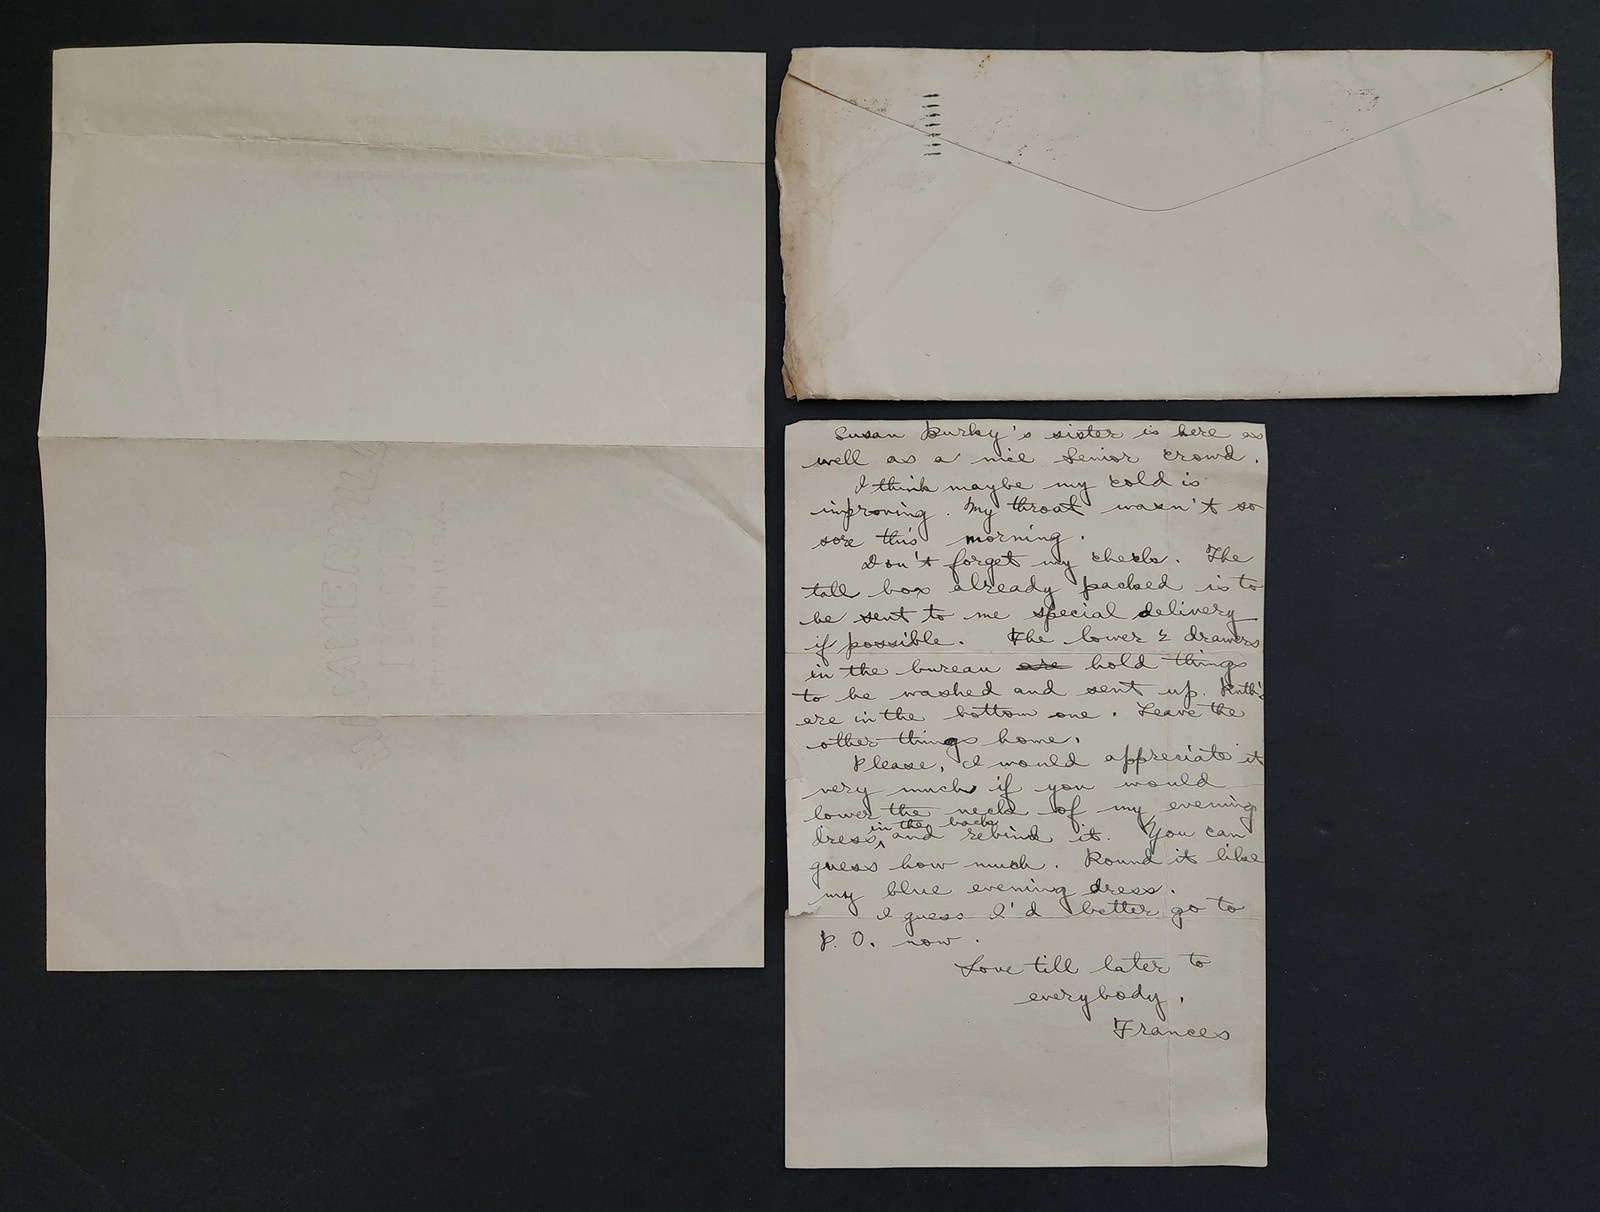 Susan Burky's sister is here as
well as a nice Senior crowd.
I think maybe my cold is
improving. My throat wasn't so
sore this morning.
Don't forget my checks. The
tall box already packed is to
be sent to me special delivery
if possible. The lower 2 drawers
in the bureau are hold things
to be washed and sent up. Ruth's
are in the bottom one. Leave the
other things home.
Please, I would appreciate it
very much if you would
lower the neck of my evening
in the back
dress ^ and rebind it. You can
guess how much. Round it like
my blue evening dress.
I guess I'd better go to
P. O. now.
Love till later to
everybody,
Frances